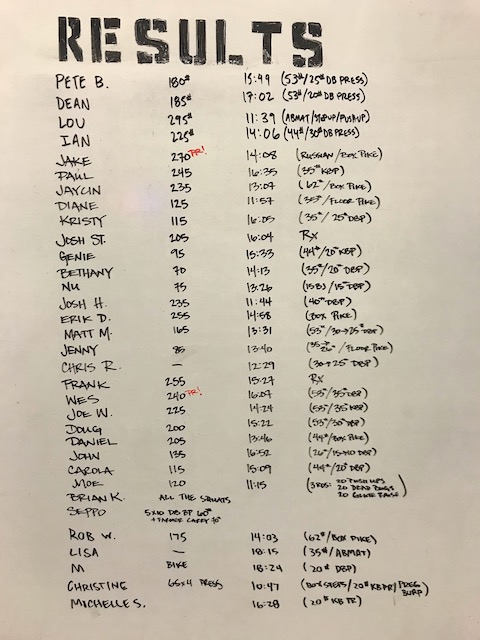 RESULTS
PETE B. 180# 15:49 (53#/25# DB PRESS)
DEAN 185# 17:02 (53#/20# DB PRESS)
LOU 295# 11:39 (ABMAT/STEPUP/PUSHUP)
IAN 225# 14:06 (44#/30# DB PRESS)
JAKE 270 PR! 14:08 (RUSSIAN/BOX PIKE)
PAUL 245 16:35 (35# KBP)
JAYCIN 235 13:07 (62#/BOX PIKE)
DIANE 125 11:57 (35#/FLOOR PIKE)
KRISTY 115 16:05 (35#/25# DBP)
JOSH ST. 205 16:04 RX
GENIE 95 15:33 (44#/20# KBP)
BETHANY 70 14:13 (35#/20# DBP)
NU 75 13:26 (15BJ/15# DBP)
JOSH H. 235 11:44 (40# DBP)
ERIK D. 255 14:58 (BOX PIKE)
MATT M. 165 13:31 (53#/30→25# DBP)
JENNY 85 13:40 (35→26#/FLOOR PIKE)
CHRIS R. — 12:29 (30→25# DBP)
FRANK 255 15:27 RX
WES 240 PR! 16:07 (53#/35# DBP)
JOE W. 225 14:24 (53#/35# KBP)
DOUG 200 15:22 (53#/30# DBP)
DANIEL 205 13:46 (44#/BOX PIKE)
JOHN 135 16:52 (26#/15→10 DBP)
CAROLA 115 15:09 (44#/20# DBP)
MOE 120 11:15 (3 RDS: 20 PUSH UPS
20 DEAD BUGS
20 GLUTE RAISE)
BRIAN K. ALL THE SQUATS
SEPPO 5X10 DB BP 60#
+ FARMER CARRY 70#
ROB W. 175 14:03 (62#/BOX PIKE)
LISA — 18:15 (35#/ABMAT)
M BIKE 18:24 (20# DBP)
CHRISTINE 65X4 PRESS 10:47 (BOX STEPS/20# KB PR/PREG BURP)
MICHELLE S. 16:28 (20# KB PR)